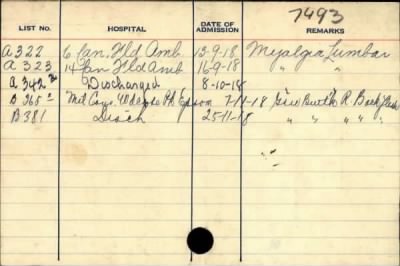 7493
LIST No. HOSPITAL DATE OF ADMISSION REMARKS
A 322 6 Can. Fld Amb. 13-9-18 Myalgia Lumbar
A 323 14 Can Fld Amb 16-9-18 " "
A 342 Discharged 8-10-18
B 365 Mil. Con. Epsom 7-11-18 G.S.W. R.
B 381 Disch 25-11-18 " " " "